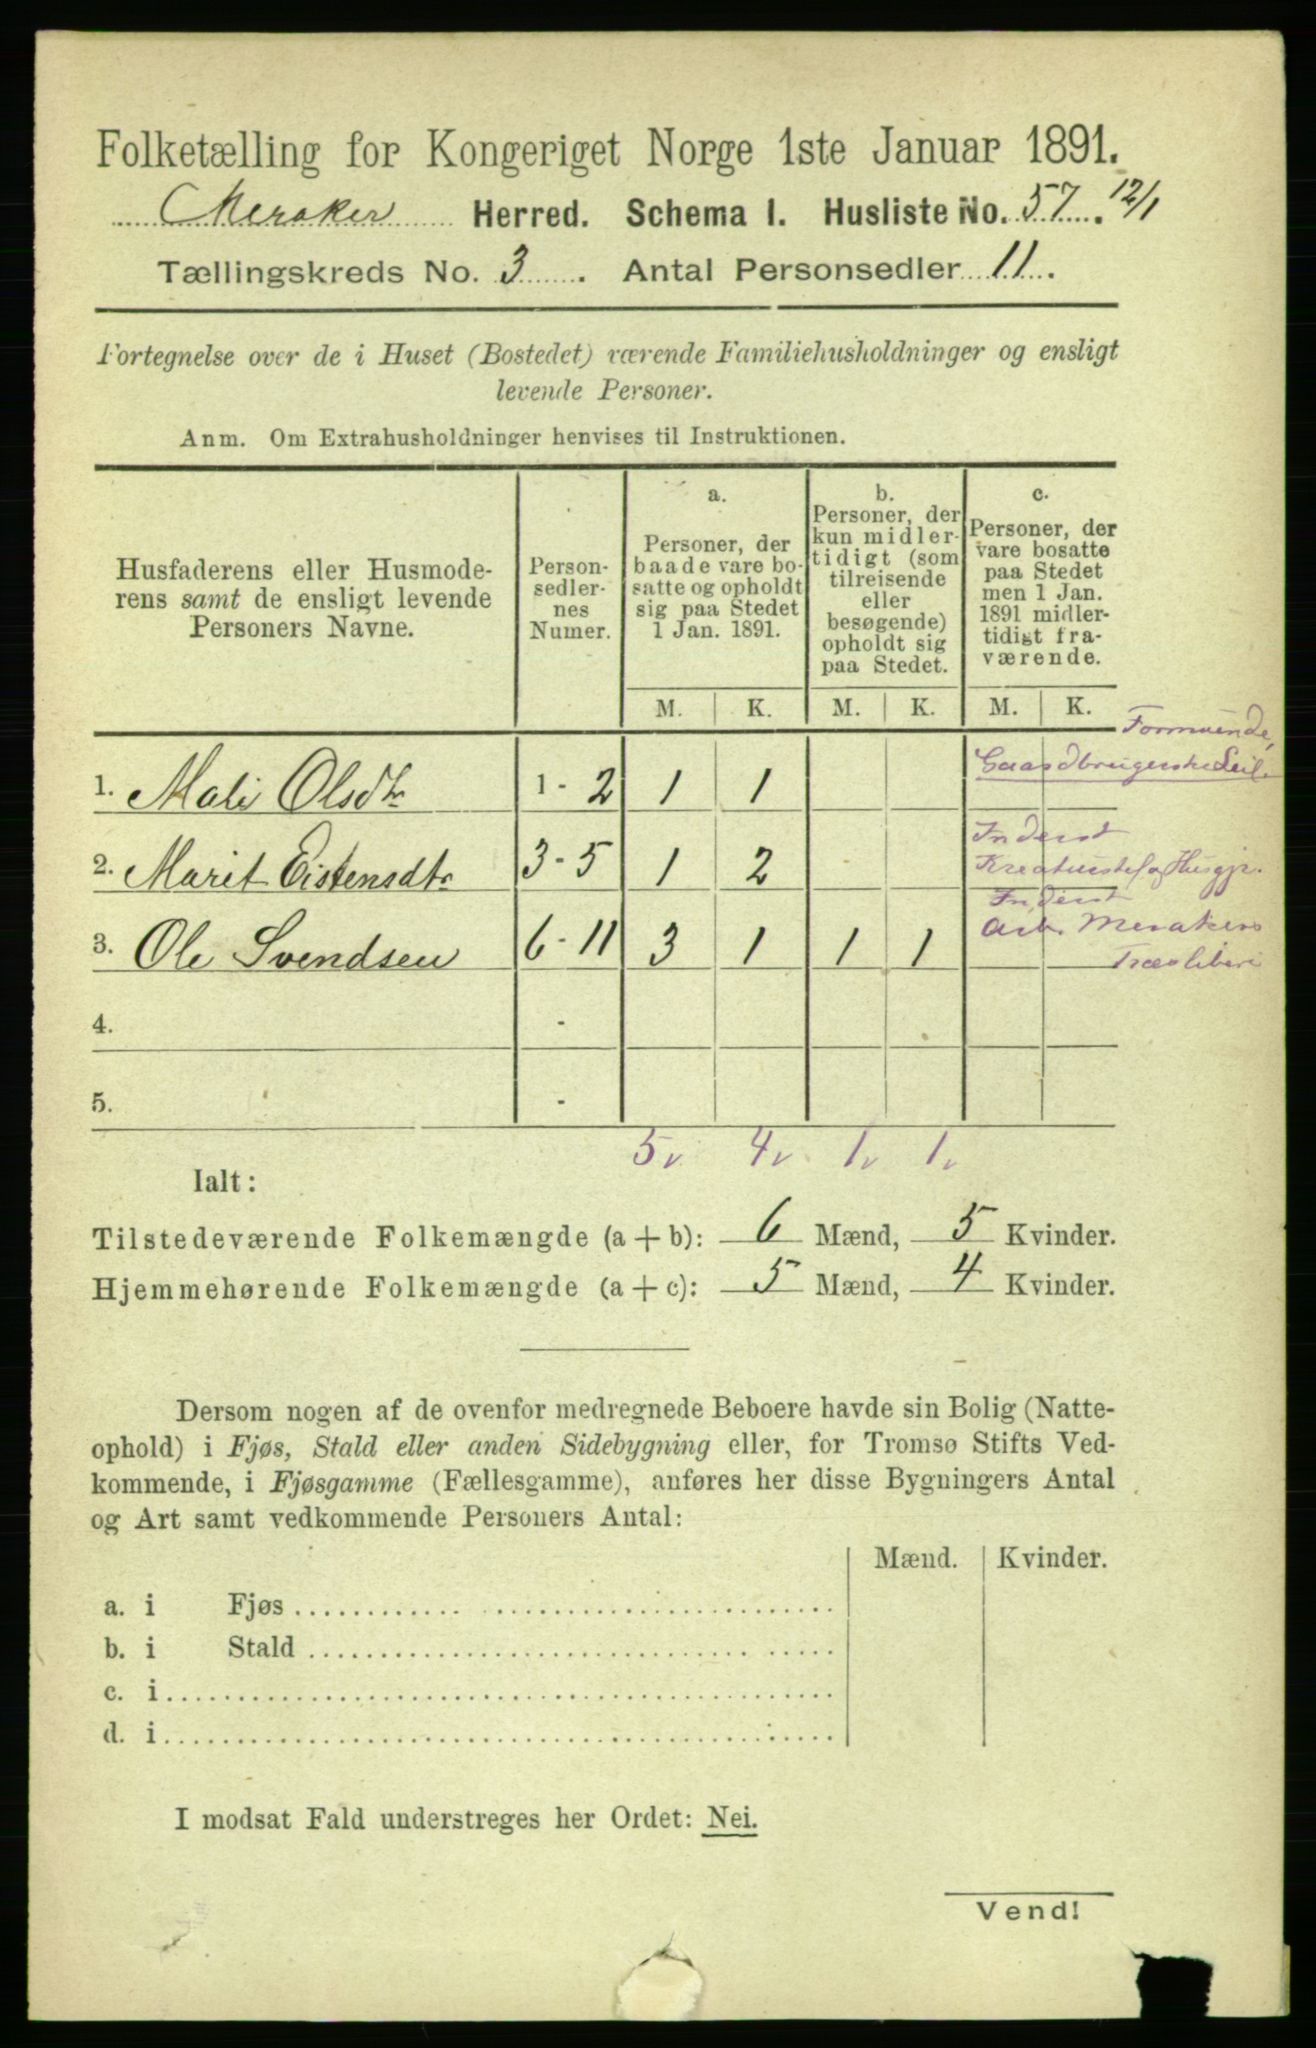 Folketælling for Kongeriget Norge 1ste Januar 1891.
Meraker Herred. Schema I. Husliste No. 57. 12/1
Tællingskreds No. 3. Antal Personsedler 11.
Fortegnelse over de i Huset (Bostedet) værende Familiehusholdninger og ensligt
levende Personer.
Anm. Om Extrahusholdninger henvises til Instruktionen.
Husfaderens eller Husmode-
rens samt de ensligt levende
Personers Navne.
Person-
sedler-
nes
Numer.
a.
Personer, der
baade vare bo-
satte og opholdt
sig paa Stedet
1 Jan. 1891.
b.
Personer, der
kun midler-
tidigt (som
tilreisende
eller
besøgende)
opholdt sig
paa Stedet.
c.
Personer, der
vare bosatte
paa Stedet
men 1 Jan.
1891 midler-
tidigt fra-
værende.
M. K. M. K. M. K.
Formuende,
Gaardbrugerske Leil.
1. Mali Olsdtr 1 - 2 1 1
Inderst
2. Marit Eistensdtr 3 - 5 1 2 Kreaturstel og Husgjr.
Inderst
3. Ole Svendsen 6 - 11 3 1 1 1 Arb. Merakers
Træsliberi
4. -
5. -
5v 4v 1v 1v
Ialt:
Tilstedeværende Folkemængde (a + b): 6 Mænd, 5 Kvinder.
Hjemmehørende Folkemængde (a + c): 5 Mænd, 4 Kvinder.
Dersom nogen af de ovenfor medregnede Beboere havde sin Bolig (Natte-
ophold) i Fjøs, Stald eller anden Sidebygning eller, for Tromsø Stifts Ved-
kommende, i Fjøsgamme (Fællesgamme), anføres her disse Bygningers Antal
og Art samt vedkommende Personers Antal:
Mænd. Kvinder.
a. i Fjøs
b. i Stald
c. i
d. i
I modsat Fald understreges her Ordet: Nei.
Vend!